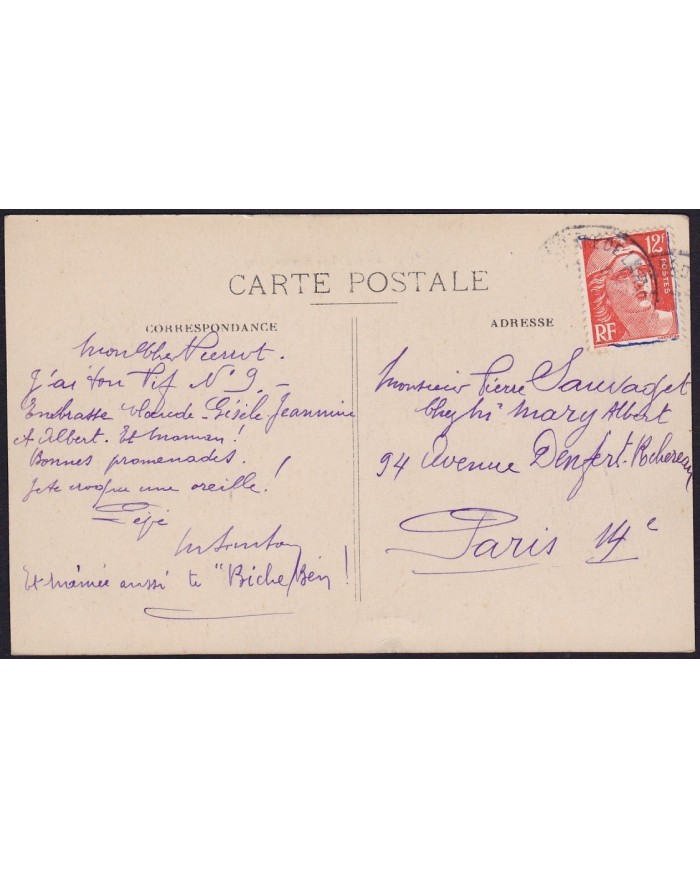 CARTE POSTALE
CORRESPONDANCE
Mon cher Pierrot.
J'ai ton Pif N° 9.
Embrasse Claude. Gisèle. Jeannine
et Albert. Et maman!
Bonnes promenades.
Je te croque une oreille!
Pépé
Et mémée aussi te "
ADRESSE
Monsieur Pierre Sauvaget
Chez Mr Mary Albert
94 Avenue Denfert-Rochereau
Paris 14e
12F
POSTES
RF